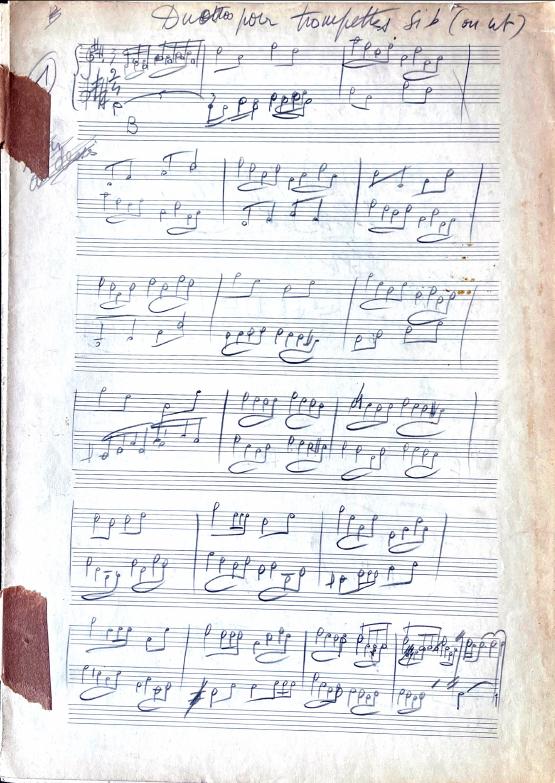 Duettos pour trompettes sib (ou ut)
1
2
4
B